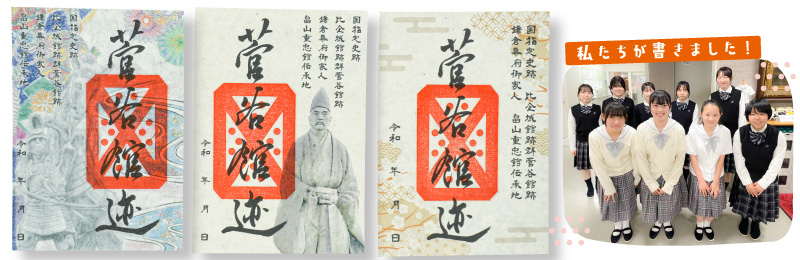 菅谷館迹
国指定史跡
比企城館跡群菅谷館跡
鎌倉幕府御家人
畠山重忠館伝承地
令和 年 月 日
国指定史跡
比企城館跡群菅谷館跡
鎌倉幕府御家人
畠山重忠館伝承地
菅谷館迹
令和 年 月 日
国指定史跡 比企城館跡群菅谷館跡
鎌倉幕府御家人 畠山重忠館伝承地
菅谷館迹
令和 年 月 日
私たちが書きました！